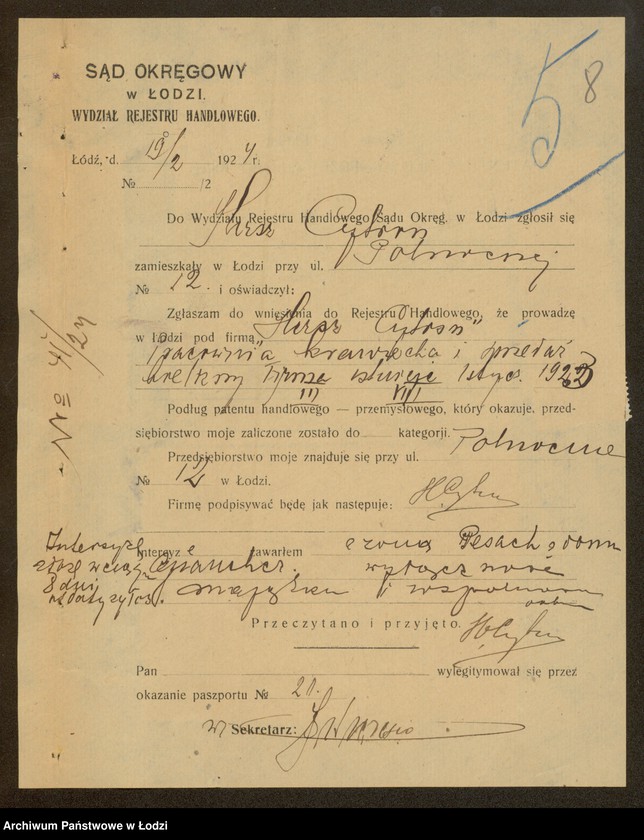 58
SĄD OKRĘGOWY
w ŁODZI.
WYDZIAŁ REJESTRU HANDLOWEGO.
Łódź, d. 19/2 1924 r.
№ /2
Do Wydziału Rejestru Handlowego Sądu Okręg. w Łodzi zgłosił się
Hersz Cytron
zamieszkały w Łodzi przy ul. Północnej
№ 12. i oświadczył:
Zgłaszam do wniesienia do Rejestru Handlowego, że prowadzę
w Łodzi pod firmą „Hersz Cytron"
pracownia krawiecka i sprzedaż
firma istnieje 1 stycz. 1923
III VIII
Podług patentu handlowego — przemysłowego, który okazuje, przed-
siębiorstwo moje zaliczone zostało do kategorji.
Przedsiębiorstwo moje znajduje się przy ul. Północne
№ 12 w Łodzi.
Firmę podpisywać będę jak następuje: H Cytron
Intercyzę
Intercyz ę zawarłem z żoną Pesach z domu
złożę w ciągu wyłączność
8 dni majątku i wspólność
od daty
Przeczytano i przyjęto. H Cytron
Pan wylegitymował się przez
okazanie paszportu № 21.
w Sekretarz:
Nr 4/24
Archiwum Państwowe w Łodzi